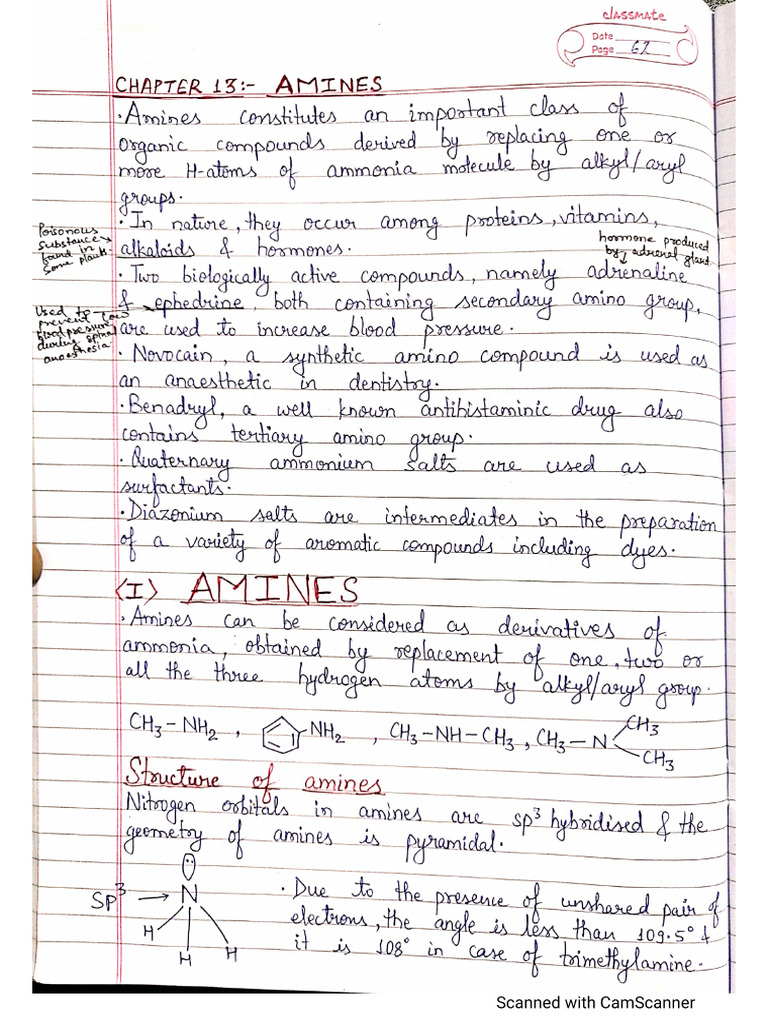 classmate
Date
Page 62
CHAPTER 13:- AMINES
·Amines constitutes an important class of
organic compounds derived by replacing one or
more H-atoms of ammonia molecule by alkyl/aryl
groups.
·In nature, they occur among proteins, vitamins,
alkaloids & hormones.
Poisonous
substances
found in
some plants.
hormone produced
by adrenal gland.
·Two biologically active compounds, namely adrenaline
& ephedrine, both containing secondary amino group,
are used to increase blood pressure.
Used to
prevent low
blood pressure
during spinal
anaesthesia
·Novocain, a synthetic amino compound is used as
an anaesthetic in dentistry.
·Benadryl, a well known antihistaminic drug also
contains tertiary amino group.
·Quaternary ammonium salts are used as
surfactants.
·Diazonium salts are intermediates in the preparation
of a variety of aromatic compounds including dyes.
<I> AMINES
·Amines can be considered as derivatives of
ammonia, obtained by replacement of one, two or
all the three hydrogen atoms by alkyl/aryl group.
CH3-NH2, -NH2, CH3-NH-CH3, CH3-N CH3
CH3
Structure of amines
Nitrogen orbitals in amines are sp³ hybridised & the
geometry of amines is pyramidal.
SP³ → N
H H H
·Due to the presence of unshared pair of
electrons, the angle is less than 109.5° &
it is 108° in case of trimethylamine.
Scanned with CamScanner